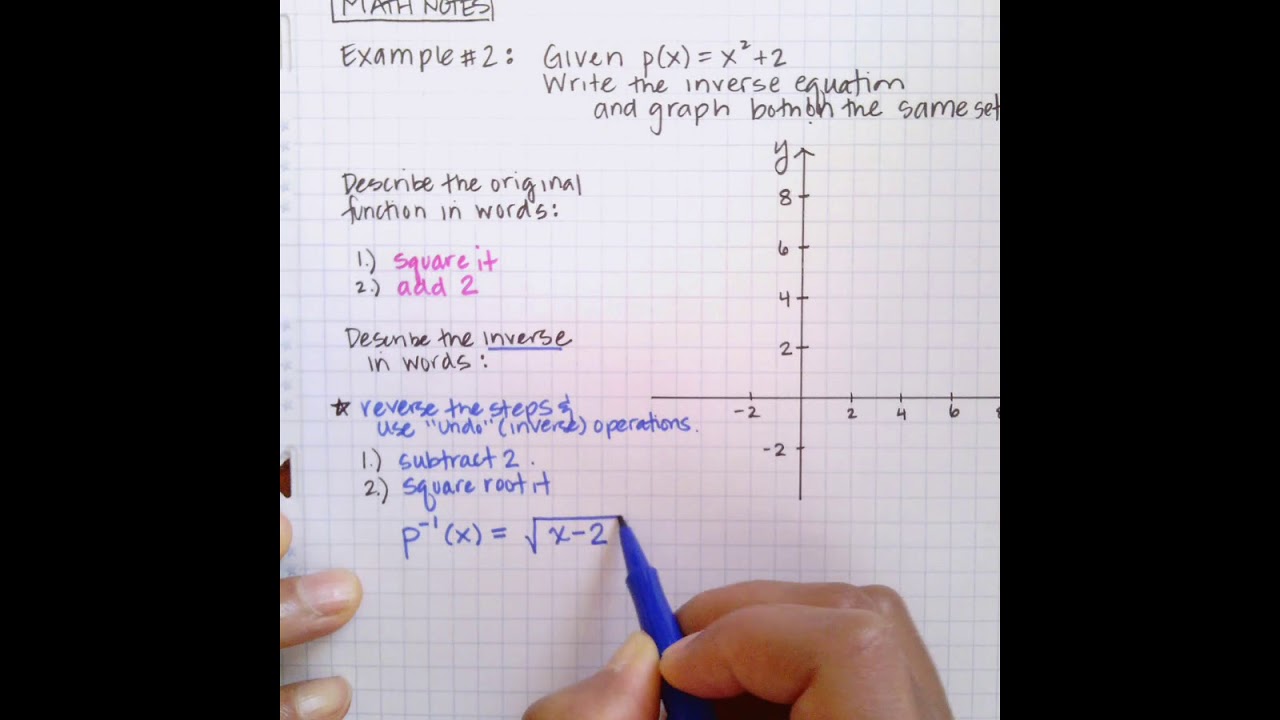 MATH NOTES
Example #2: Given p(x) = x² + 2
Write the inverse equation
and graph both on the same set
Describe the original
function in words:
1.) square it
2.) add 2
Describe the inverse
in words:
★ reverse the steps &
use "undo" (inverse) operations.
1.) subtract 2.
2.) square root it
p⁻¹(x) = √x-2
y
8
6
4
2
-2 2 4 6
-2